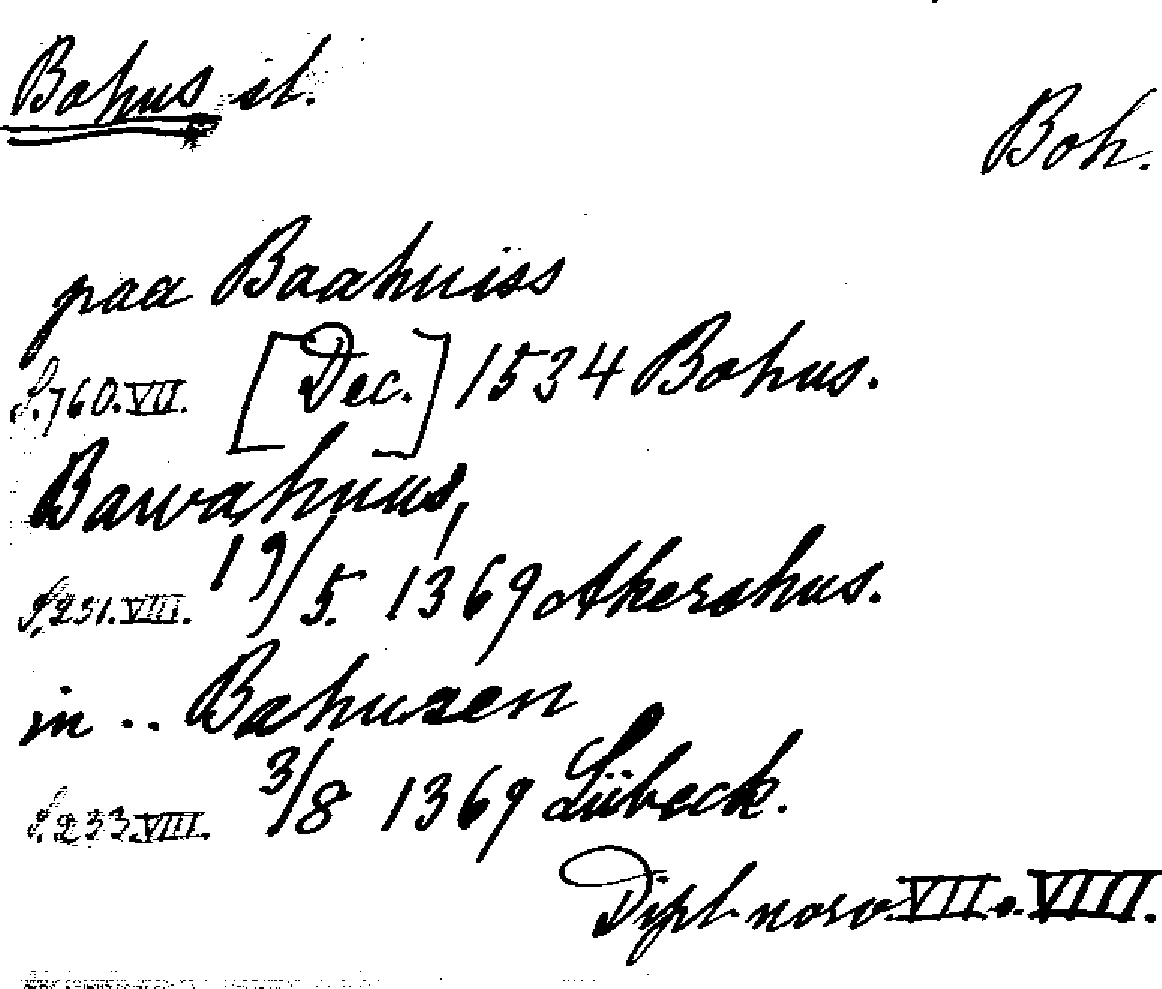 Bohus sl.
Boh.
paa Baahuiss
S. 760. VII. [Dec.] 1534 Bohus.
Bawahuus,
S. 231. VIII. 19/5. 1369 Akershus.
in .. Bahusen
S. 233. VIII. 3/8 1369 Lübeck.
Dipl. norv. VII o. VIII.